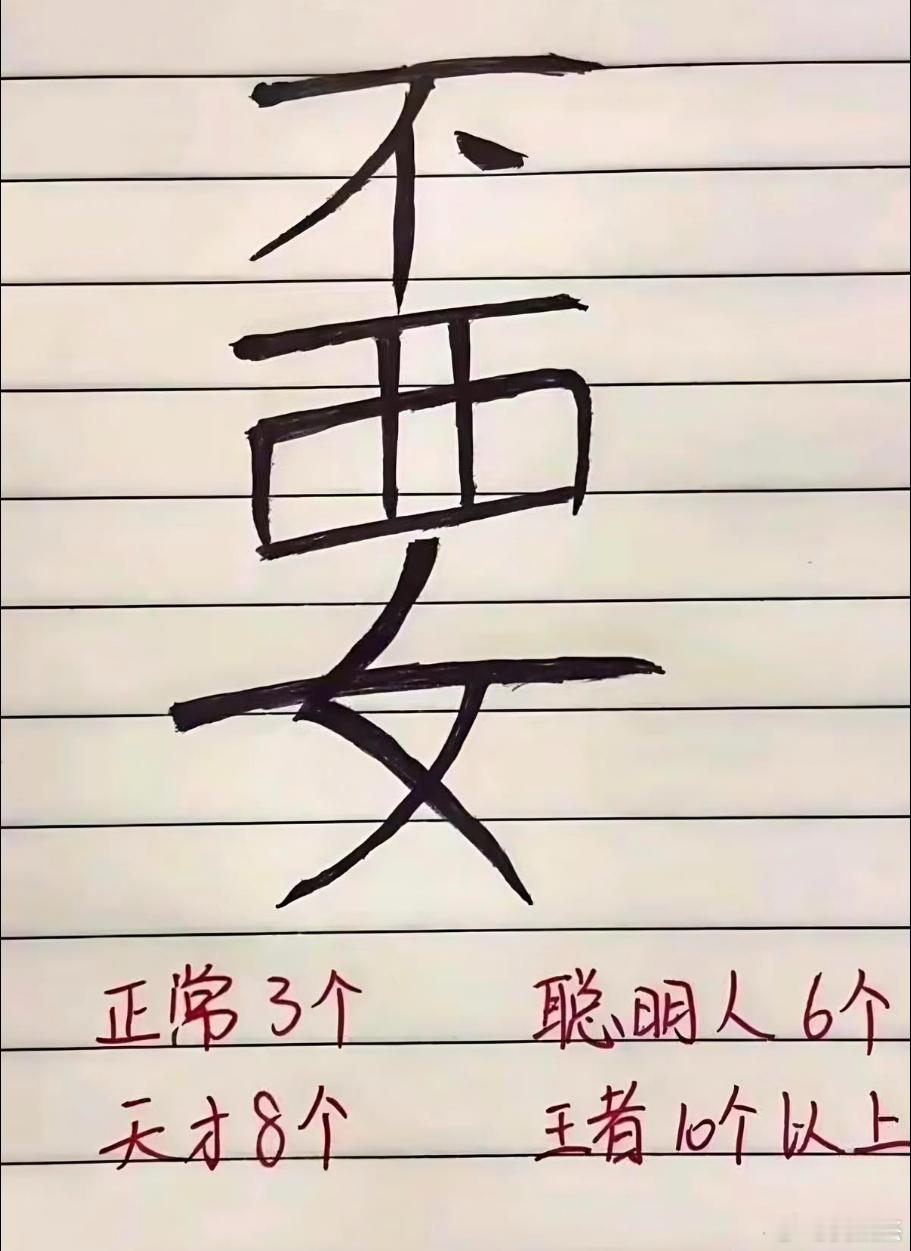 不
覀
女
正常3个 聪明人6个
天才8个 王者10个以上